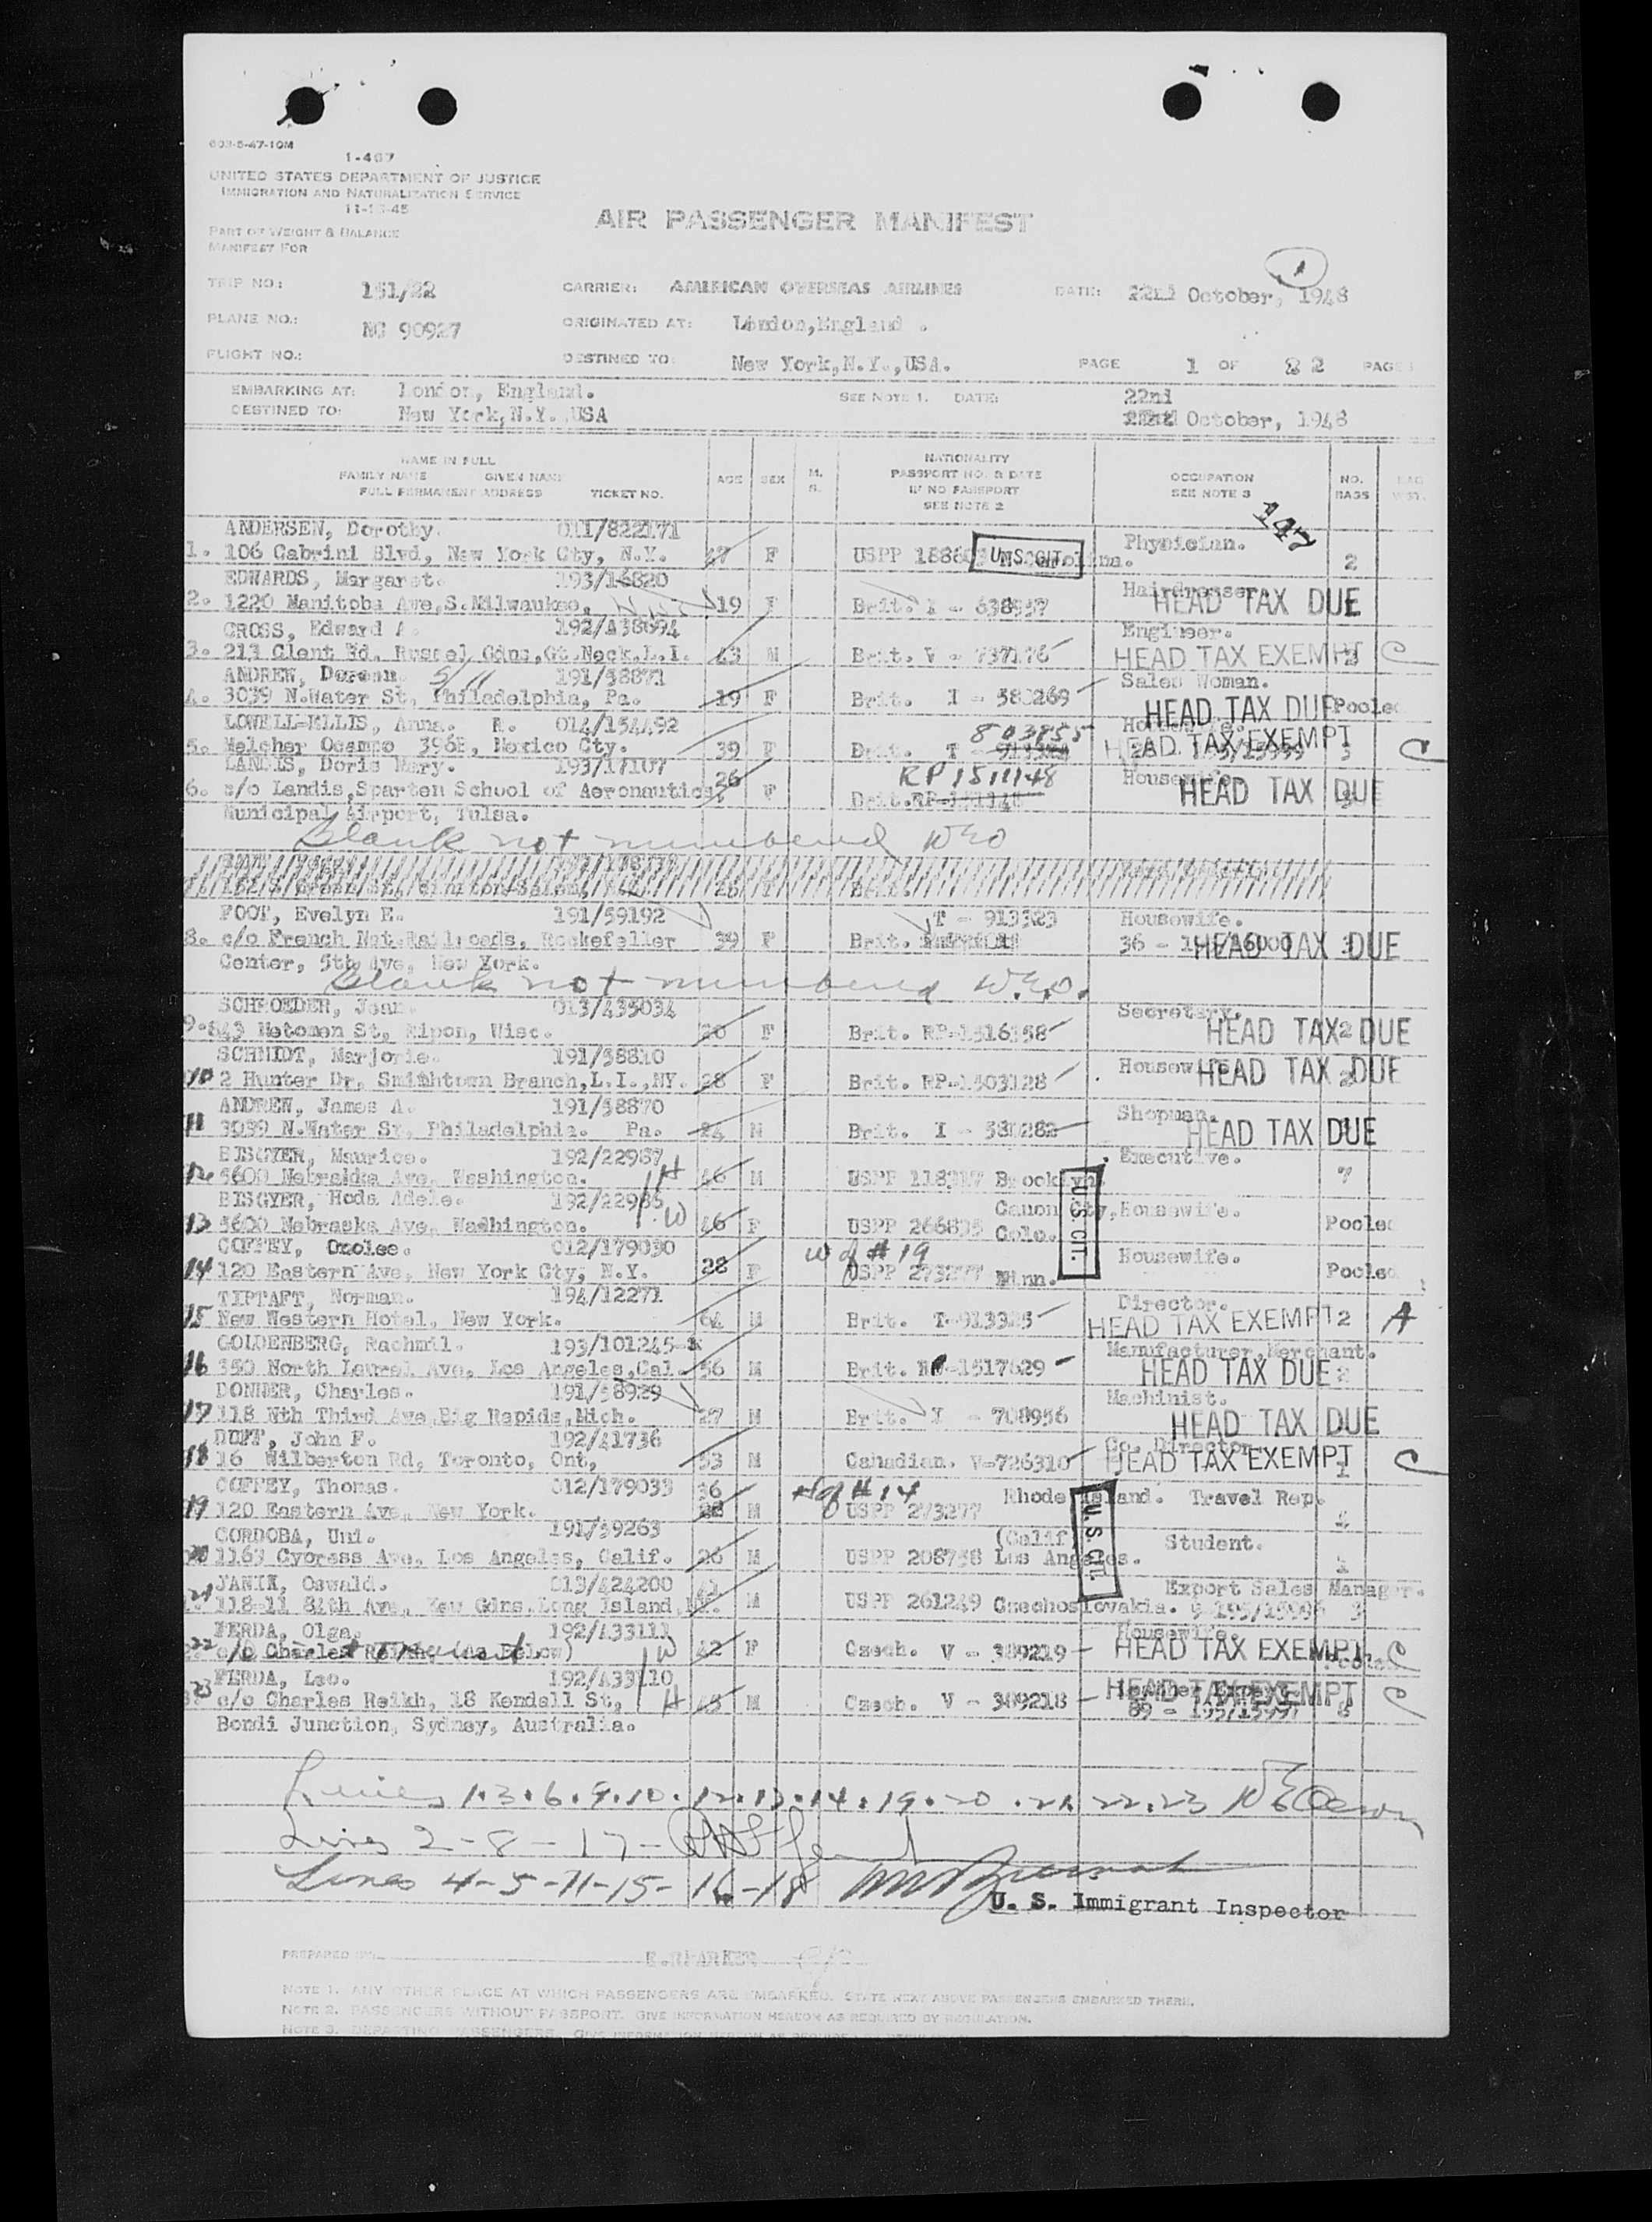 603-5-47-10M
1-407
UNITED STATES DEPARTMENT OF JUSTICE
IMMIGRATION AND NATURALIZATION SERVICE
AIR PASSENGER MANIFEST
PART OF WEIGHT & BALANCE
MANIFEST FOR
1
TRIP NO.: 151/22 CARRIER: AMERICAN OVERSEAS AIRLINES DATE: 22nd October, 1948
PLANE NO.: NC 90927 ORIGINATED AT: London, England .
FLIGHT NO.: DESTINED TO: New York, N.Y., USA. PAGE 1 OF 2 PAGES
EMBARKING AT: London, England. SEE NOTE 1. DATE: 22nd
DESTINED TO: New York, N.Y. USA October, 1948
NAME IN FULL NATIONALITY
FAMILY NAME GIVEN NAME AGE SEX M. PASSPORT NO. & DATE OCCUPATION NO. BAG
FULL PERMANENT ADDRESS TICKET NO. IF NO PASSPORT SEE NOTE 3 BAGS WGT.
SEE NOTE 2
147
ANDERSEN, Dorothy. 011/822171 Physician.
1. 106 Cabrini Blvd, New York Cty, N.Y. 47 F USPP U.S. CIT. 2
EDWARDS, Margaret. 193/16820 Hairdresser.
2. 1220 Manitoba Ave, S. Milwaukee, 19 F Brit. I - 638957 HEAD TAX DUE
CROSS, Edward A. 192/A38694 Engineer.
3. Gt. Neck, L.I. 43 M Brit. V - 737176 HEAD TAX EXEMPT C
ANDREW, Doreen. 191/58871 Sales Woman.
4. 3039 N. Water St, Philadelphia, Pa. 19 F Brit. I - 580269 HEAD TAX DUE Pooled
LOWELL-ELLIS, Anna. R. 014/154492 803855
5. Melchor Ocampo 396E, Mexico Cty. 39 F Brit. T - HEAD TAX EXEMPT 3 C
LANDIS, Doris Mary. 193/17107 RP 1511148 Housewife
6. c/o Landis, Sparten School of Aeronautics, 26 F Brit. HEAD TAX DUE
Municipal Airport, Tulsa.
Blank not numbered WEO
FOOT, Evelyn E. 191/59192 T - 913323 Housewife.
8. c/o French Nat. Railroads, Rockefeller 39 F Brit. HEAD TAX DUE
Center, 5th Ave, New York.
Blank not numbered W.E.O.
SCHROEDER, Jean. 013/435034 Secretary.
9. 843 Watomen St, Ripon, Wisc. 20 F Brit. RP-1316358 HEAD TAX DUE 2
SCHMIDT, Marjorie. 191/58810
10 2 Hunter Dr, Smithtown Branch, L.I., NY. 28 F Brit. RP-1503128 Housewife HEAD TAX DUE 2
ANDREW, James A. 191/58870 Shopman.
11 3039 N. Water St, Philadelphia. Pa. 24 M Brit. I - 580282 HEAD TAX DUE
BISGYER, Maurice. 192/22987 Executive.
12 5600 Nebraska Ave, Washington. H 46 M USPP Brooklyn. 7
BISGYER, Heda Adele. 192/22985 Canon Cty, Housewife.
13 5600 Nebraska Ave, Washington. W 46 F USPP 266835 Colo. U.S. CIT. Pooled
COFFEY, Oxolee. 012/179030 W of #19 Housewife.
14 120 Eastern Ave, New York Cty, N.Y. 28 F USPP 273277 Minn. Pooled
TIPTAFT, Norman. 194/12271 Director.
15 New Western Hotel, New York. 64 M Brit. T-913325 HEAD TAX EXEMPT 2 A
GOLDENBERG, Rachmil. 193/101245 Manufacturer, Merchant.
16 350 North Laurel Ave, Los Angeles, Cal. 56 M Brit. -1517629 HEAD TAX DUE 2
DONNER, Charles. 191/58929 Machinist.
17 118 Nth Third Ave Big Rapids, Mich. 27 M Brit. I - 708956 HEAD TAX DUE
DUFF, John F. 192/41736 Co. Director.
18 16 Wilberton Rd, Toronto, Ont, 53 M Canadian. V-726310 HEAD TAX EXEMPT 1 C
COFFEY, Thomas. 012/179033 36 H of #14 Rhode Island. Travel Rep.
19 120 Eastern Ave, New York. M USPP 273277 4
CORDOBA, Uni. 191/59263 (Calif Student.
20 1163 Cypress Ave, Los Angeles, Calif. 26 M USPP 208738 Los Angeles. U.S. CIT. 1
JANIK, Oswald. 013/424200 41 Export Sales Manager.
21 118-11 84th Ave, Kew Gdns, Long Island, NY. M USPP 261249 Czechoslovakia. 3
FERDA, Olga. 192/A33111 Housewife.
22 c/o Charles W 42 F Czech. V - 389219 HEAD TAX EXEMPT C
FERDA, Leo. 192/A33110
23 c/o Charles Reikh, 18 Kendall St, H 45 M Czech. V - 389218 HEAD TAX EXEMPT C
Bondi Junction, Sydney, Australia.
Lines 1.3.6.9.10.12.13.14.19.20.21.22.23
Lines 2-8-17-
Lines 4-5-11-15-16-18
U. S. Immigrant Inspector
PREPARED BY E. PARKER
NOTE 1. ANY OTHER PLACE AT WHICH PASSENGERS ARE EMBARKED. STATE NEXT ABOVE PASSENGERS EMBARKED THERE.
NOTE 2. PASSENGERS WITHOUT PASSPORT. GIVE INFORMATION HEREON AS REQUIRED BY REGULATION.
NOTE 3. DEPARTING PASSENGERS